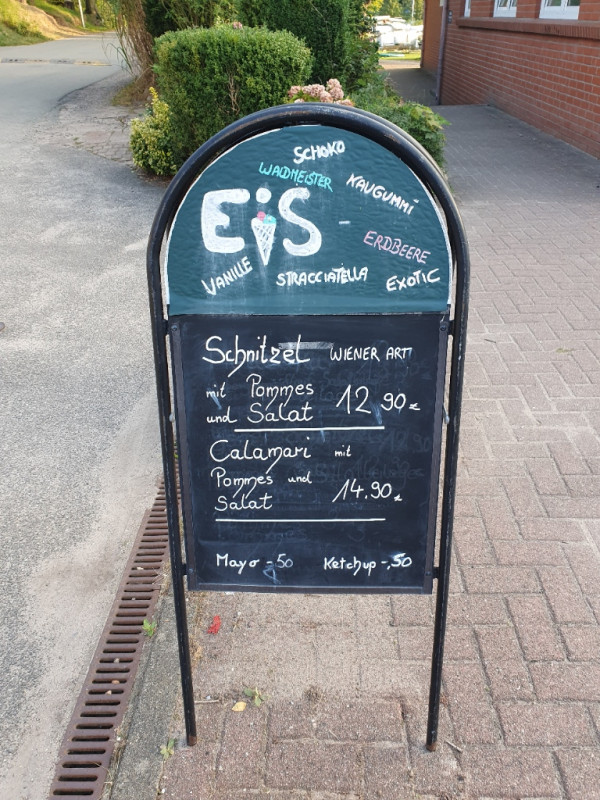 SCHOKO
WALDMEISTER
KAUGUMMI
EiS -
ERDBEERE
VANILLE
STRACCIATELLA
EXOTIC
Schnitzel WIENER ART
mit Pommes
und Salat 12,90€
Calamari mit
Pommes und
Salat 14.90€
Mayo -.50 Ketchup -.50